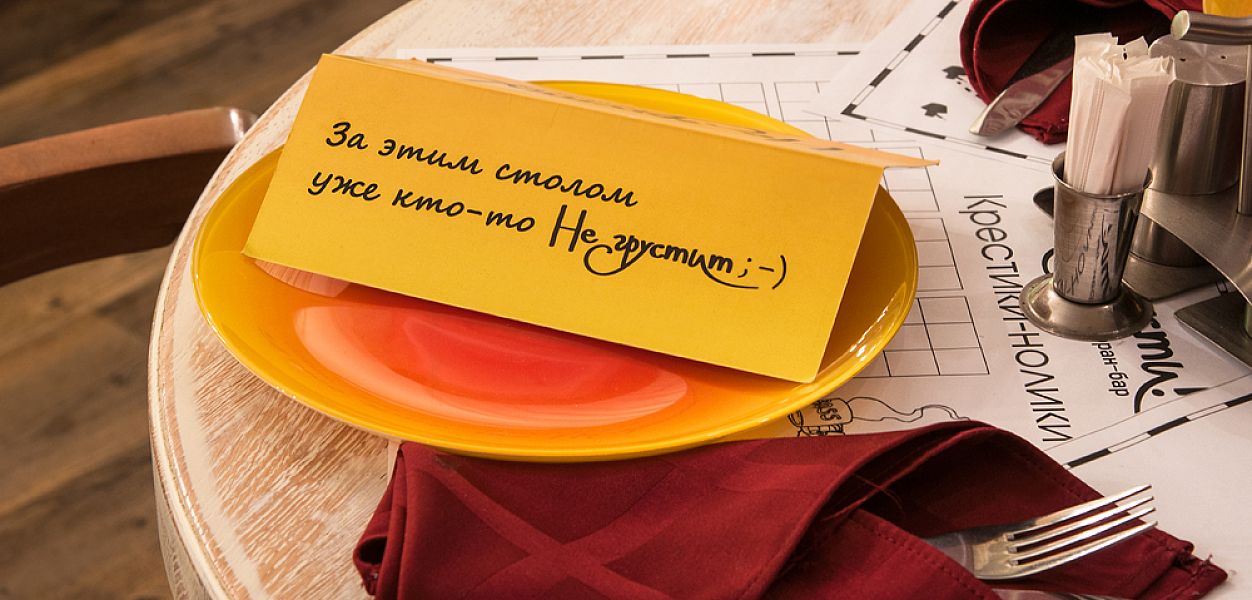 За этим столом
уже кто-то Не грустит ;-)
Крестики-нолики